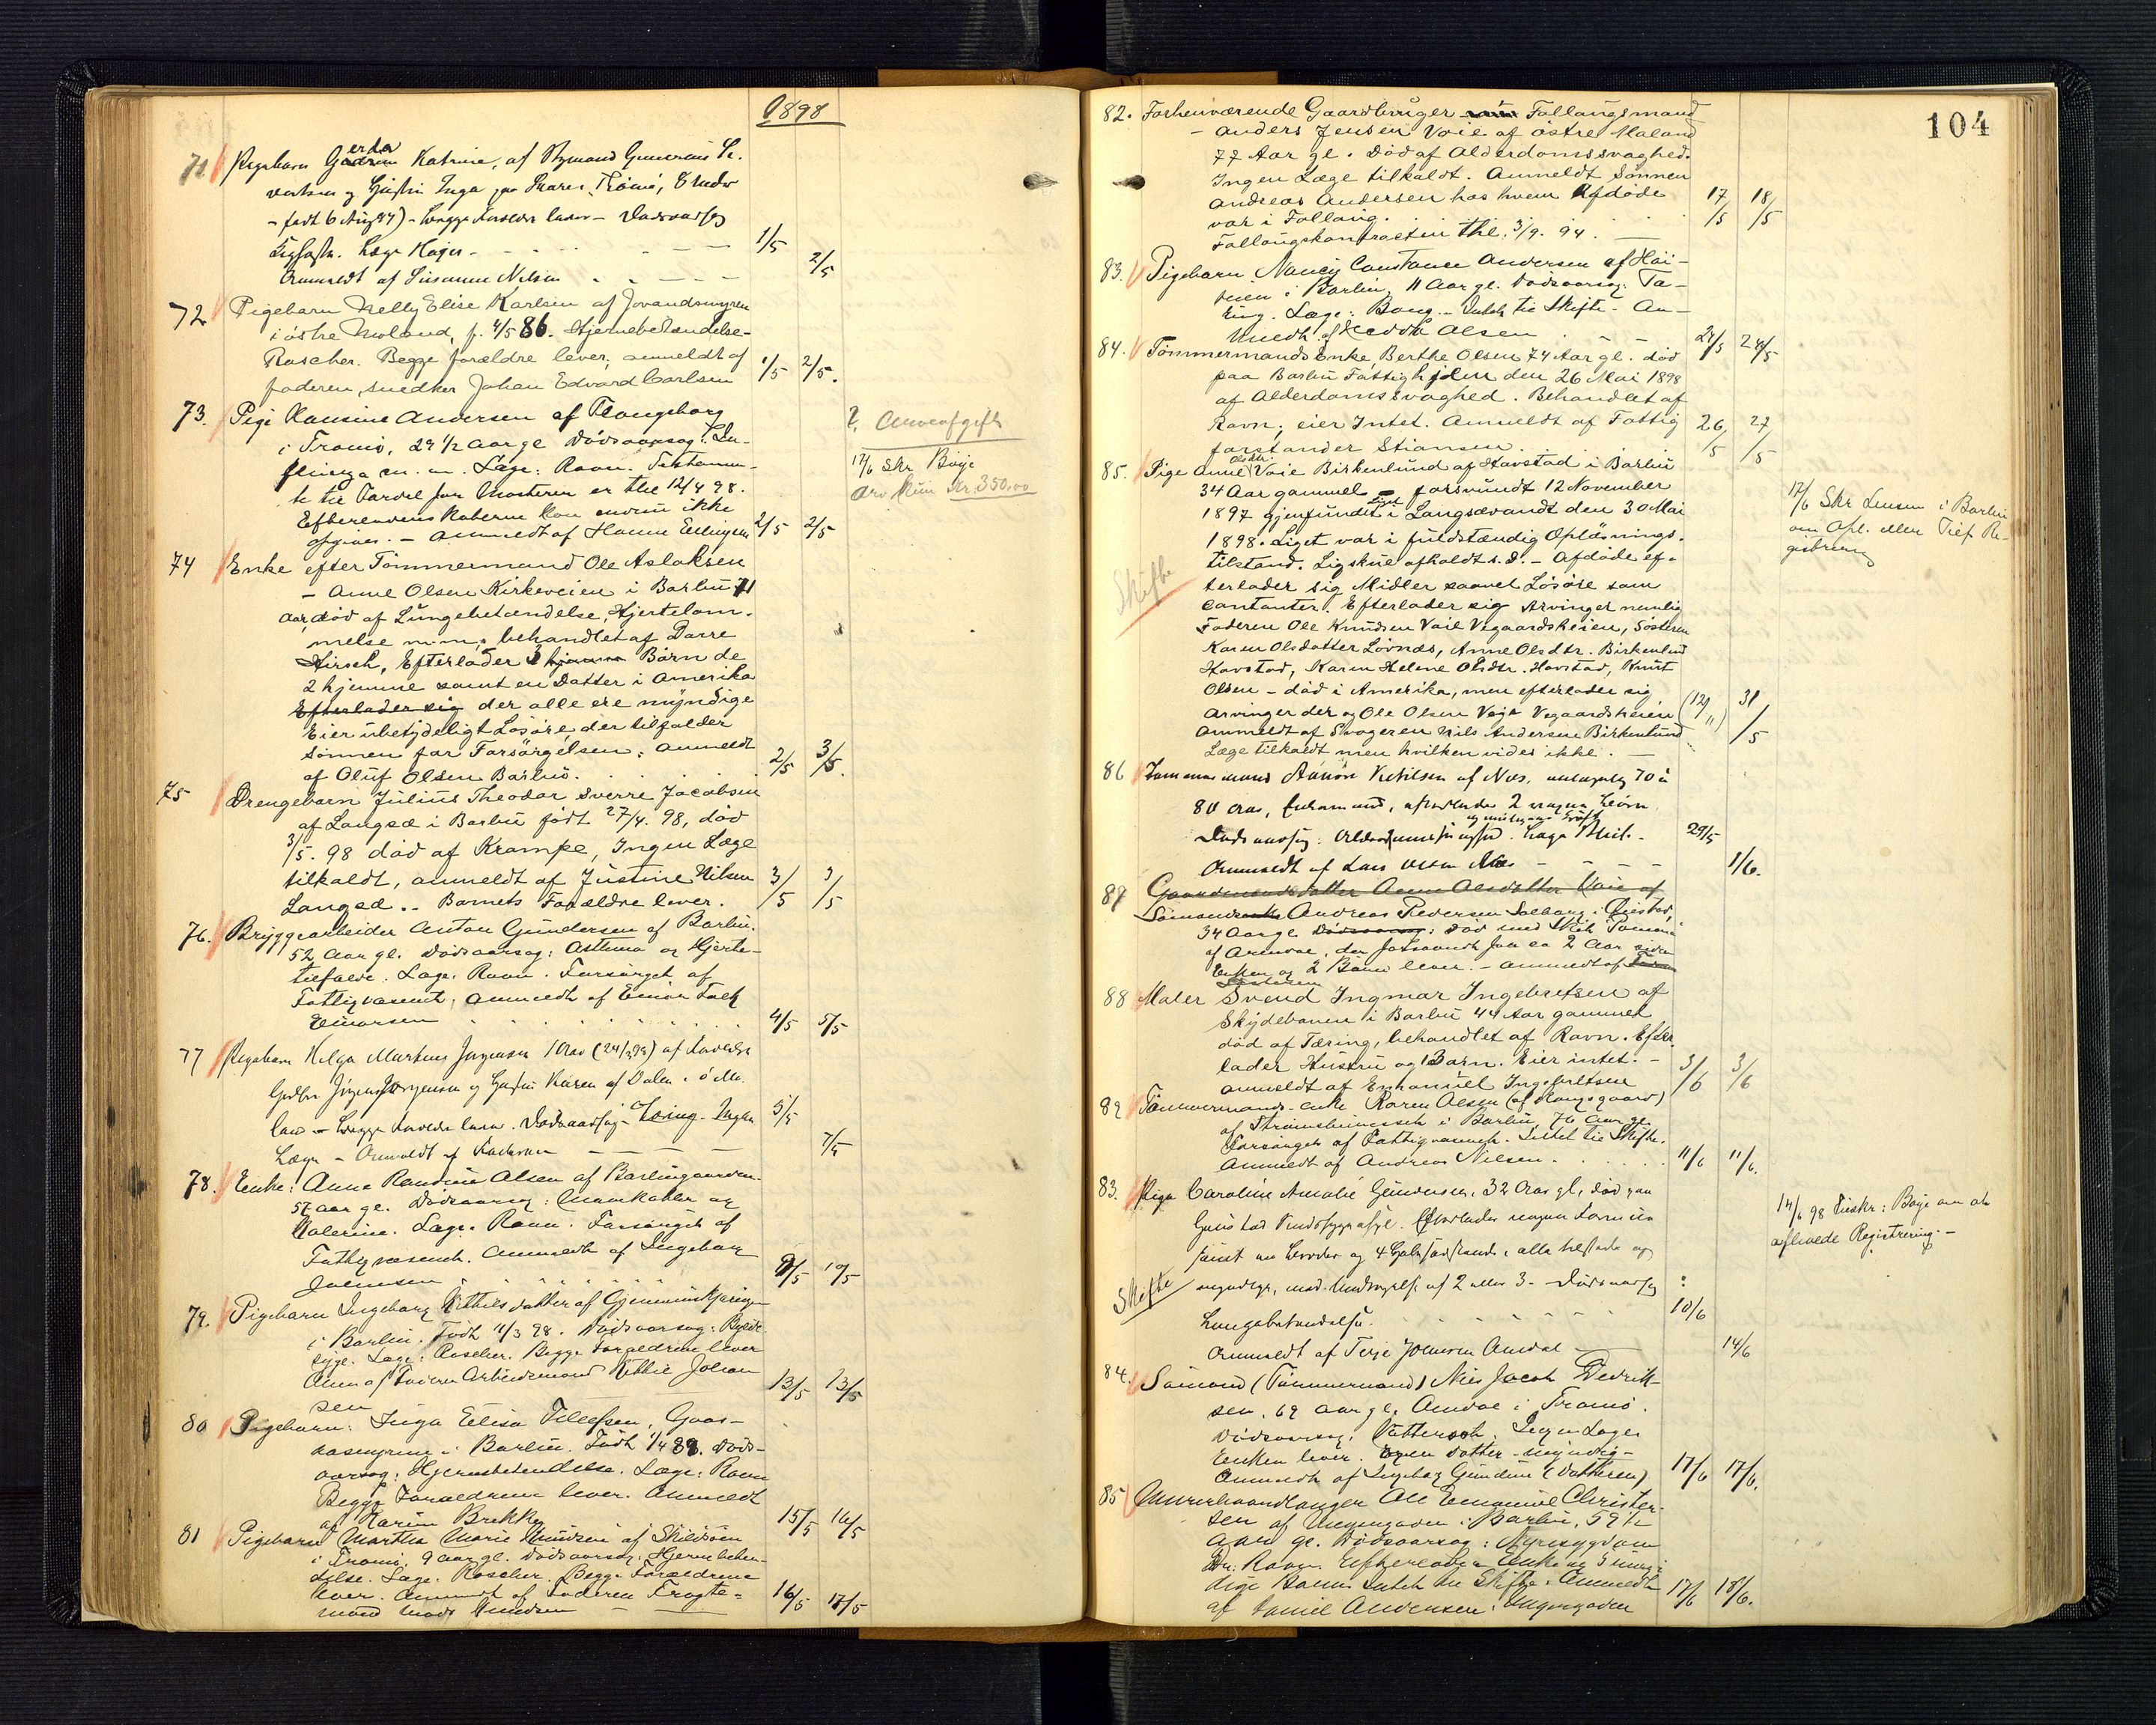 1898
71 Pigebarn Gerda Katrine, af Styrmand
og Hustru Inga paa Tromø,
- født 6 Aug 97) - begge Forældre lever - Dødsaarsag
Læge Høyer - 1/5
Anmeldt af Susanne Nilsen 2/5
72 Pigebarn Nelly Elise Karlsen af Jovandsmyren
i østre Moland, f. 4/5 86. Hjernebetændelse -
Rascher. Begge forældre lever, anmeldt af
faderen, snedker Johan Edvard Carlsen 1/5 2/5.
73. Pige Hansine Andersen af Flangeborg
i Tromø, 29 1/2 aar gl. Dødsaarsag: In-
fluenza m. m. Læge: Ravn. Testamen-
te til Fordel for Mosteren er thl 12/4 98.
Efterladenskaberne kan endnu ikke
opgives. - Anmeldt af Hanne Ellingsen 2/5 2/5
?. Arveafgift
17/6 Skr. Bøye
Arv kun Kr. 350,00
74 Enke efter Tömmermand Ole Aslaksen
- Anne Olsen Kirkeveien i Barbu 71
Aar, död af Lüngebetændelse, Hjertelam-
melse m.m., behandlet af Darre
Hirsch, Efterlader 3 hjemme Börn de
2 hjemme samt en Datter i Amerika
Efterlader sig der alle ere myndige
Eier übetydeligt Lösöre, der tilfalder
Sönnen for Forsörgelsen: Anmeldt
af Olüf Olsen Barbu. 2/5 3/5.
75 Drengebarn Jülius Theodor Sverre Jacobsen
af Langsæ i Barbü født 27/4. 98, död
3/5. 98 död af Krampe, Ingen Læge
tilkaldt, anmeldt af Jüstine Nilsen 3/5 3/5
Langsæ .. Barnets Forældre lever.
76. Bryggearbeider Anton Gundersen af Barbu.
52 aar gl. Dødsaarsag: Asthma og Hjerte-
tilfælde. Læge: Ravn. Forsørget af
Fattigvæsenet; anmeldt af Einar Falk
Einarsen 4/5 5/5
77 Pigebarn Helga Jørgensen 1 Aar (24/3 98) af Forældre
Jørgensen og Hustru Karen af Dalen i ø Mo-
land - begge Forældre lever. Dødsaarsag - Tæring. Ingen 5/5
Læge - Anmeldt af Faderen 7/5
78. Enke: Anna Olsen af Barbugaarden
57 aar gl. Dødsaarsag: Mavekatarr og
Læge: Ravn. Forsørget af
Fattigvæsenet. Anmeldt af Ingeborg
Johnsen 9/5 10/5
79. Pigebarn Ingeborg Kittilsdatter af
i Barbu. Født 11/3 98. Dødsaarsag:
Læge: Rascher. Begge Forældrene lever
Anm af Faderen Arbeidsmand Kittil Johan
sen 13/5 13/5
80 Pigebarn: Inga Elisa Tellefsen, Gaas-
aasmyrene i Barbu. Født 1/4 88. Døds-
aarsag: Hjernebetændelse. Læge: Ravn
Begge Forældrene lever. Anmeldt
af Karen Brekke 15/5 16/5
81 Pigebarn Martha Marie Knudsen af Skilsøen
i Tromø, 9 aar gl. Dødsaarsag: Hjernebetæn-
delse. Læge: Rascher. Begge Forældrene
lever. Anmeldt af Faderen Fragte-
mand Mads Knudsen 16/5 17/5
104
82. Forhenværende Gaardbruger Follaugsmand
- Anders Jensen Voie af østre Moland
77 Aar gl. Død af Alderdomssvaghed.
Ingen Læge tilkaldt. Anmeldt Sönnen
Andreas Andersen hos hvem Afdöde
var i Follaug. 17/5 18/5
Follaugskontracten thl. 3/9. 94.
83. Pigebarn Nancy Constance Andersen af Høi-
veien i Barbu. 11 Aar gl. Dødsaarsag: Tæ-
ring. Læge: Bang. - Intet til Skifte - An-
meldt af Hedda Olsen 24/5 24/5
84. Tömmermands Enke, Berthe Olsen 74 Aar gl. død
paa Barbu Fattighjem den 26 Mai 1898
af Alderdomssvaghed. Behandlet af
Ravn; eier Intet. Anmeldt af Fattig
forstander Stiansen 26/5 27/5
85. Pige Anne Olsdtr. Voie Birkenlund af Havstad i Barbu
34 Aar gammel - forsvundt 12 November
1897 gjenfundet Liget i Langsævandt den 30 Mai
1898. Liget var i füldstændig Oplösnings-
tilstand. Ligskue afholdt s.D. - Afdöde ef-
terlader sig Midler saavel Lösöre som
Contanter. Efterlader sig Arvinger nemlig
Faderen Ole Knudsen Voie Vegaardsheien, Søstren
Karen Olsdatter Lövnæs, Anne Olsdtr. Birkenlund
Havstad, Karen Helene Olsdtr. Havstad, Knut
Olsen - död i Amerika, men efterlader sig
Arvinger der og Ole Olsen Veje Vegaardsheien (12/11) 31/5
Anmeldt af Svogeren Nils Andersen Birkenlund
Læge tilkaldt men hvilken vides ikke. -
Skifte
17/6 Skr Lensm i Barbu
om Opl. eller Tilf Re-
gistrering
86 Tømmermand Aanon Kittilsen af Næs, antagelig 70 à
80 Aar, Enkemand, efterlader 2 Børn
Dødsaarsag: Alderdomssvaghed. Læge 29/5
Anmeldt af Lars Olsen Næs 1/6.
87 Gaardmandsdatter Anne Olsdatter Voie af
Sømand Andreas Pedersen Solberg i
34 Aar gl. Dødsaarsag: død med Skib Pomona
af Arendal, der forsvandt for ca 2 Aar siden
Enken og 2 Børn lever. - Anmeldt af
88 Maler Svend Ingmar Ingebretsen af
Skydebanen i Barbu 44 Aar gammel
död af Tæring, behandlet af Ravn. Efter-
lader Hustru og 1 Barn. Eier intet. -
anmeldt af Emanuel Ingebretsen 3/6 3/6
89 Tømmermands-enke Karen Olsen (af Langsgaard)
af Strømsbunessch i Barbu, 76 Aar gl.
Forsørget af Fattigvæsenet. Intet til Skifte.
Anmeldt af Andreas Nielsen. 11/6 11/6.
83. Pige Caroline Amalie Gundersen, 32 Aar gl., død paa
Gaustad Sindssygeasyl. Efterlader ingen
samt en Broder og 4 Halvsødskende, alle tilstede og
myndige, med Undtagelse af 2 eller 3 - Dødsaarsag:
Lungebetændelse. 10/6
Anmeldt af Terje Johnsen Omdal 14/6
Skifte
14/6 98 Tilskr: Bøye om at
afholde Registrering -
84. Sømand (Tømmermand) Nils Jacob Didrik-
sen, 69 aar gl. Omdal i Tromø.
Dødsaarsag: Vattersot. Ingen Læge
Enken lever. En Datter - myndig -
Anmeldt af Ingeborg Gundine (Datteren) 17/6 17/6.
85 Murerhaandlanger Ole Emanuel Christen-
sen af Myrengaden i Barbu, 59 1/2
Aar gl. Dødsaarsag: Nyresygdom
Dr: Ravn. Efterlader Enke og 3 umyn-
dige Børn. Intet til Skifte. Anmeldt
af Daniel Andersen, Myrengaden 17/6 18/6.